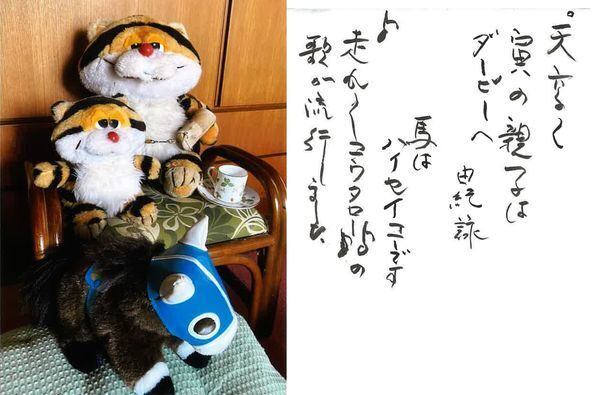 天高く
寅の親子は
ダービーへ
由紀 詠
馬は
ハイセイコーです
♪走れ〱コウタロー♪の
歌が流行しました